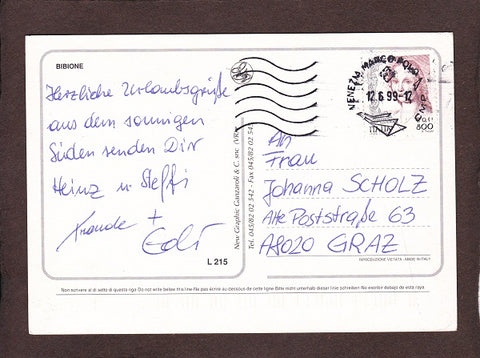 BIBIONE
Herzliche Urlaubsgrüße
aus dem sonnigen
Süden senden Dir
Heinz u Steffi
Traude +
L 215
New Graphic Ganzaroli & C. snc (VR)
Tel. 045/82 02 542 - Fax 045/82 02 543
VENEZIA MARCO POLO
12.6.99-12
800
An
Frau
Johanna SCHOLZ
Alte Poststraße 63
A8020 GRAZ
RIPRODUZIONE VIETATA - MADE IN ITALY
Non scrivere al di sotto di questa riga Do not write below this line Ne pas écrire au-dessous de cette ligne Bitte nicht unterhalb dieser linie schreiben No escribir debajo de esta raya